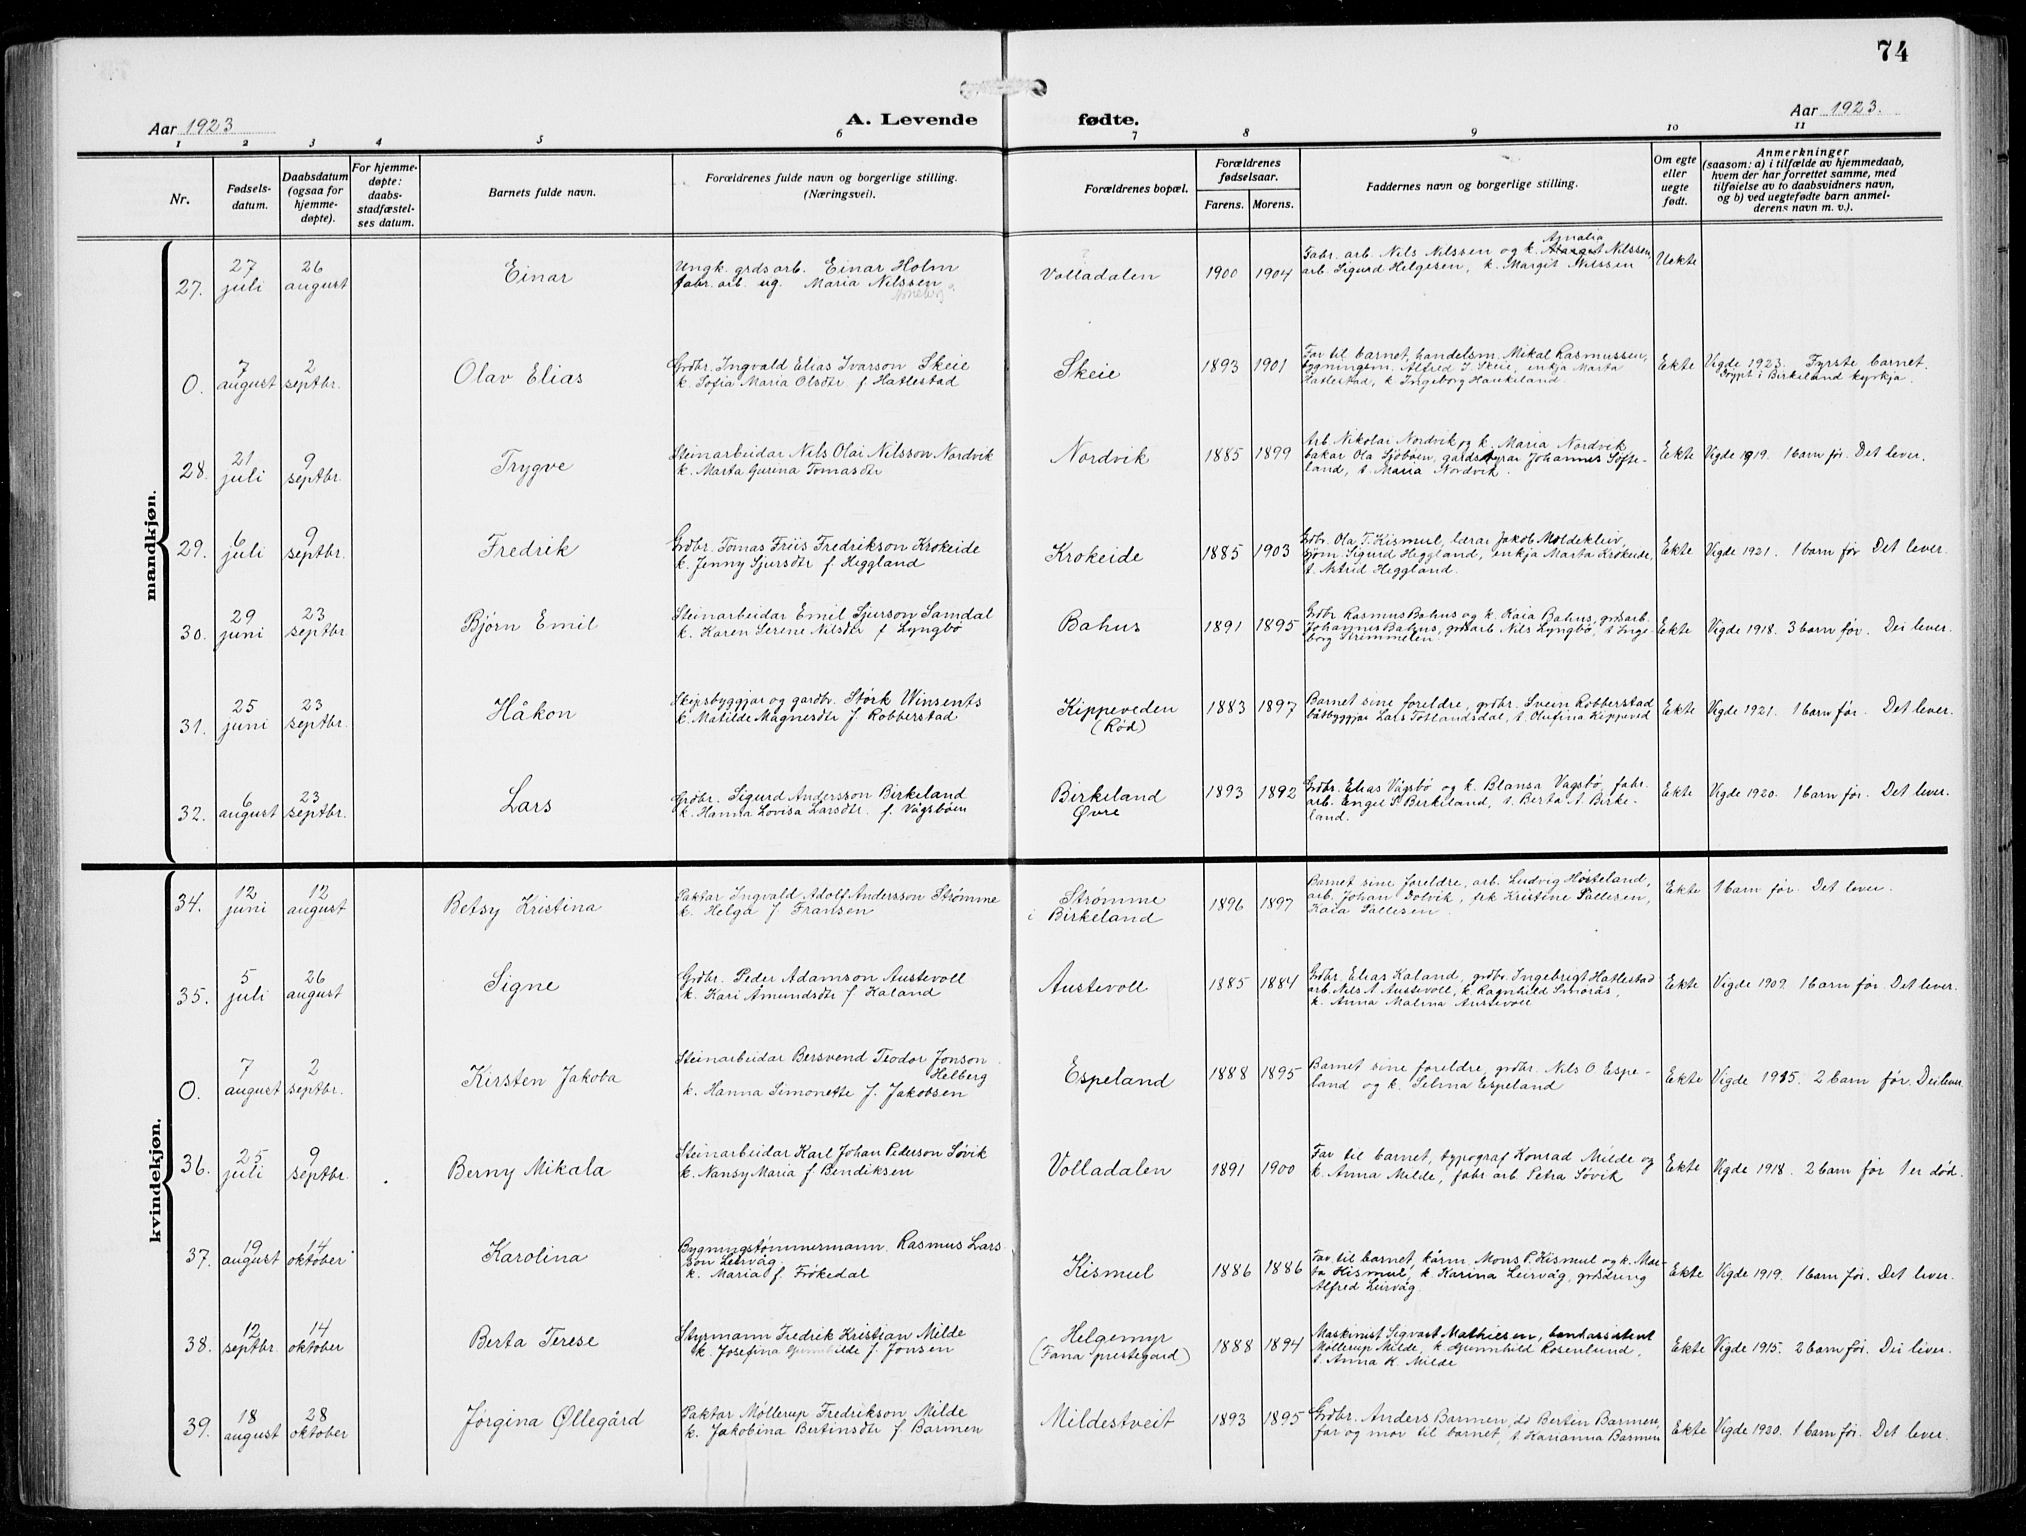 74
Aar 1923
A. Levende fødte.
Aar 1923.
1 2 3 4 5 6 7 8 9 10 11
Nr.
Fødsels-
datum.
Daabsdatum
(ogsaa for
hjemme-
døpte).
For hjemme-
døpte:
daabs-
stadfæstel-
ses datum.
Barnets fulde navn.
Forældrenes fulde navn og borgerlige stilling.
(Næringsvei).
Forældrenes bopæl.
Forældrenes
fødselsaar.
Farens. Morens.
Faddernes navn og borgerlige stilling.
Om egte
eller
uegte
født.
Anmerkninger
(saasom: a) i tilfælde av hjemmedaab,
hvem der har forrettet samme, med
tilføielse av to daabsvidners navn,
og b) ved uegtefødte barn anmel-
derens navn m. v.).
mandkjøn.
27. 27 juli 26 august Einar
Ungk. grdsarb. Einar Holm
fabr. arb. ug. Maria Nilssen
Volladalen 1900 1904
Fabr. arb. Nils Nilssen og k. Amalia Nilssen,
arb. Sigurd Helgesen, k. Margit Nilssen
Uekte
0. 7 august 2 septbr. Olav Elias
Grdbr. Ingvald Elias Ivarson Skeie
k. Sofia Maria Olsdtr f Hatlestad
Skeie 1893 1901
Far til barnet, handelsm. Mikal Rasmussen,
bygningsm. Alfred I. Skeie, enkja Marta
Hatlestad, k Ingeborg Haukeland.
Ekte
Vigde 1923. Fyrste barnet.
Døypt i Birkeland kyrkja.
28. 21 juli 9 septbr. Trygve
Steinarbeidar Nils Olai Nilsson Nordvik
k. Marta Gurina Tomasdtr
Nordvik 1885 1899
Arb Nikolai Nordvik og k. Maria Nordvik,
bakar Ola Sjøbøen, gardstyrar Johannes Softe-
land, t. Maria Nordvik.
Ekte Vigde 1919. 1 barn før. Det lever.
29. 6 juli 9 septbr. Fredrik
Grdbr. Tomas Friis Fredrikson Krokeide
k. Jenny Sjursdtr f Heggland
Krokeide 1885 1903
Grdbr. Ola T. Kismul, lærar Jakob Moldekleiv,
sjøm. Sigurd Heggland, enkja Marta Krokeide,
t. Astrid Heggland.
Ekte Vigde 1921. 1 barn før Det lever.
30. 29 juni 23 septbr Bjørn Emil
Steinarbeidar Emil Sjurson Samdal
k. Karen Serene Nilsdtr f Lyngbø
Bahus 1891 1895
Grdbr Rasmus Bahus og k. Kaia Bahus, grdsarb.
Johannes Bahus, grdsarb Nils Lyngbø, t Inge-
borg Krimmelen
Ekte Vigde 1918. 3 barn før. Dei lever.
31. 25 juni 23 septbr. Håkon
Skipsbyggjar og gardbr. Størk Winsents
k. Matilde Magnesdtr f. Robberstad
Kippeveden
(Rød) 1883 1897
Barnet sine foreldre, grdbr. Svein Robberstad
båtbyggjar Lars Totlandsdal, t. Olufina Kippeved
Ekte Vigde 1921. 1 barn før. Det lever.
32. 6 august 23 septbr. Lars
Grdbr. Sigurd Andersson Birkeland
k. Hanna Lovisa Larsdtr. f. Vågsbøen
Birkeland
Øvre 1893 1892
Grdbr. Elias Vågsbø og k. Blansa Vagsbø, fabr.
arb. Engel S Birkeland, t. Berta A. Birke-
land.
Ekte Vigde 1920. 1 barn før. Det lever.
kvindekjøn.
34. 12 juni 12 august Betsy Kristina
Paktar Ingvald Adolf Andersson Strømme
k. Helga f. Fransen
Strømme
i Birkeland 1896 1897
Barnet sine foreldre, arb. Ludvig Hosteland,
arb. Johan Dolvik, frk Kristine Pallesen,
Kaia Pallesen.
Ekte 1 barn før. Det lever.
35. 5 juli 26 august Signe
Grdbr. Peder Adamson Austevoll
k. Kari Amundsdtr f Kaland
Austevoll 1885 1884
Grdbr. Elias Kaland, grdbr. Ingebrigt Hatlestad
arb Nils A Austevoll, k Ragnhild Smørås,
k. Anna Malina Austevoll
Ekte Vigde 1909. 1 barn før. Det lever.
0. 7 august 2 septbr. Kirsten Jakoba
Steinarbeidar Bersvend Teodor Jonson
Helberg
k. Hanna Simonette f. Jakobsen
Espeland 1888 1895
Barnet sine foreldre, grdbr. Nils O Espe-
land og k. Selma Espeland
Ekte Vigde 1915. 2 barn før. Dei lever.
36. 25 juli 9 septbr Berny Mikala
Steinarbeidar Karl Johan Pederson Søvik
k. Nansy Maria f Bendiksen
Volladalen 1891 1900
Far til barnet, typograf Konrad Milde og
k. Anna Milde, fabr arb. Petra Søvik
Ekte Vigde 1918. 2 barn før 1 er død.
37. 19 august 14 oktober Karolina
Bygningstømmermann Rasmus Lars
son Leirvåg
k. Maria f Frøkedal
Kismul 1886 1886
Far til barnet, kårm. Mons P. Kismul og k. Mar-
ta Kismul, k Karina Leirvåg, grdsdreng
Alfred Leirvåg.
Ekte Vigde 1919. 1 barn før. Det lever.
38. 12 septbr. 14 oktober Berta Terese
Styrmann Fredrik Kristian Milde
k. Josefina Gunnhilde f Jonsen
Helgemyr
(Fana prestegard) 1888 1894
Maskinist Sigvart Mathiesen, landassistent
Møllerup Milde, k Gunnhild Rosenlund,
t. Anna K. Milde
Ekte Vigde 1915. 2 barn før. Dei lever.
39. 18 august 28 oktober Jørgina Øllegård
Paktar Møllerup Fredrikson Milde
k. Jakobina Bertinsdtr f Barmen
Mildestveit 1893 1895
Grdbr. Anders Barmen, do Bertin Barmen,
far og mor til barnet, t. Karianna Barmen
Ekte Vigde 1920. 1 barn før. Det lever.